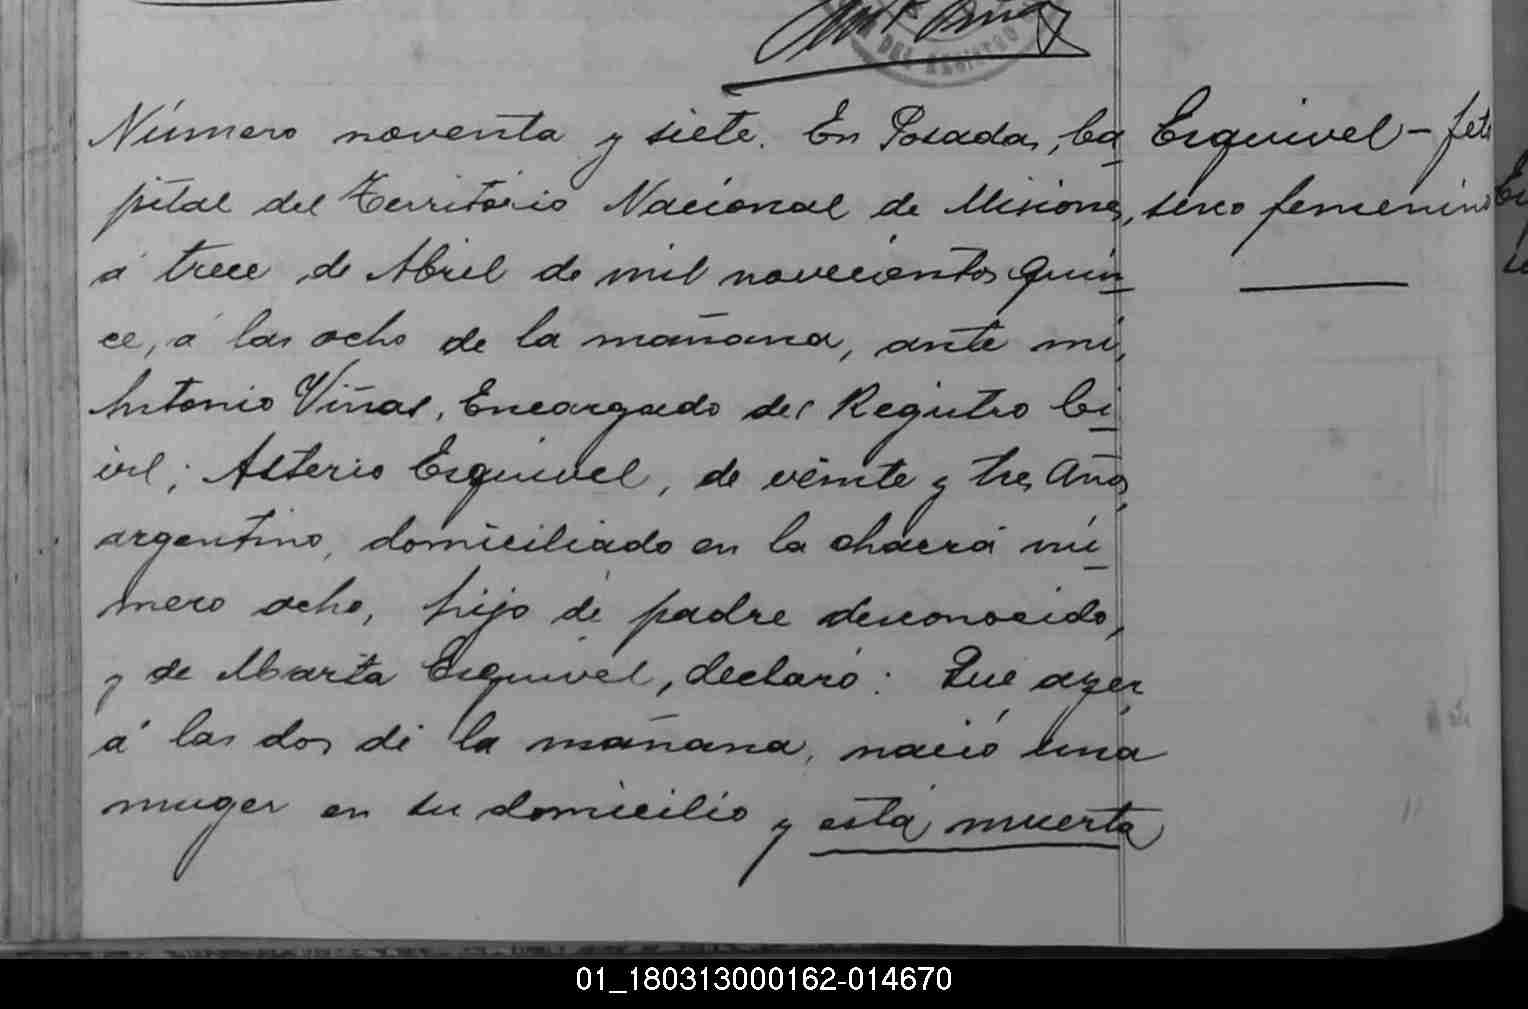 DEL REGISTRO
Número noventa y siete. En Posadas, Ca
pital del Territorio Nacional de Misiones,
á trece de Abril de mil novecientos quin
ce, á las ocho de la mañana, ante mi,
Antonio Viñas, Encargado del Registro Ci
vil; Asterio Esquivel, de veinte y tres años,
argentino, domiciliado en la chacra nú
mero ocho, hijo de padre desconocido,
y de Marta Esquivel, declaró: Que ayer
á las dos de la mañana, nació una
muger en su domicilio y está muerta
Esquivel - feto
sexo femenino
01_180313000162-014670